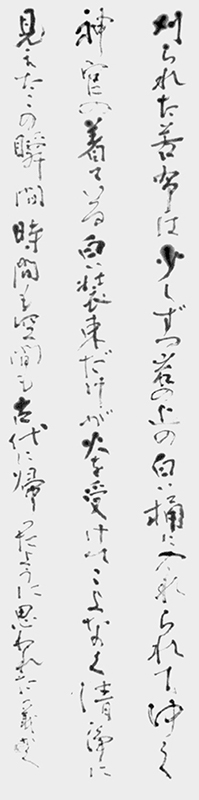 刈られた若布は少しずつ岩の上の白い桶に入れられて沖く
神官の着ている白い装束だけが火を受けてこよなく清浄に
見えたこの瞬間時間も空間も古代に帰ったように思われた